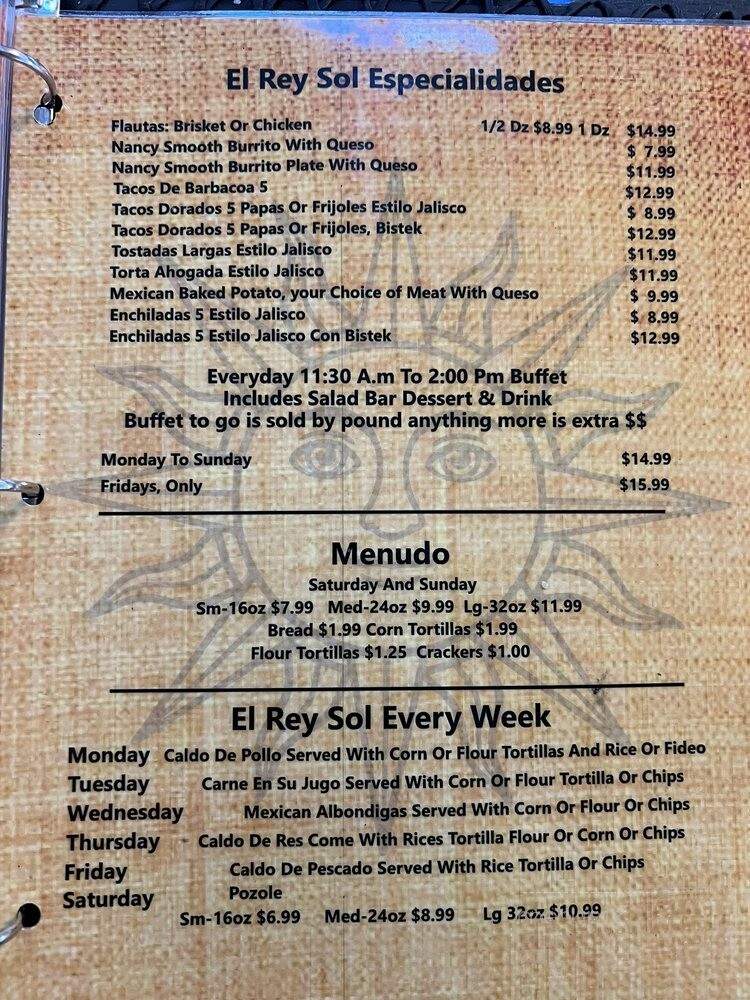 El Rey Sol Especialidades
Flautas: Brisket Or Chicken 1/2 Dz $8.99 1 Dz $14.99
Nancy Smooth Burrito With Queso $ 7.99
Nancy Smooth Burrito Plate With Queso $11.99
Tacos De Barbacoa 5 $12.99
Tacos Dorados 5 Papas Or Frijoles Estilo Jalisco $ 8.99
Tacos Dorados 5 Papas Or Frijoles, Bistek $12.99
Tostadas Largas Estilo Jalisco $11.99
Torta Ahogada Estilo Jalisco $11.99
Mexican Baked Potato, your Choice of Meat With Queso $ 9.99
Enchiladas 5 Estilo Jalisco $ 8.99
Enchiladas 5 Estilo Jalisco Con Bistek $12.99
Everyday 11:30 A.m To 2:00 Pm Buffet
Includes Salad Bar Dessert & Drink
Buffet to go is sold by pound anything more is extra $$
Monday To Sunday $14.99
Fridays, Only $15.99
Menudo
Saturday And Sunday
Sm-16oz $7.99 Med-24oz $9.99 Lg-32oz $11.99
Bread $1.99 Corn Tortillas $1.99
Flour Tortillas $1.25 Crackers $1.00
El Rey Sol Every Week
Monday Caldo De Pollo Served With Corn Or Flour Tortillas And Rice Or Fideo
Tuesday Carne En Su Jugo Served With Corn Or Flour Tortilla Or Chips
Wednesday Mexican Albondigas Served With Corn Or Flour Or Chips
Thursday Caldo De Res Come With Rices Tortilla Flour Or Corn Or Chips
Friday Caldo De Pescado Served With Rice Tortilla Or Chips
Saturday Pozole
Sm-16oz $6.99 Med-24oz $8.99 Lg 32oz $10.99